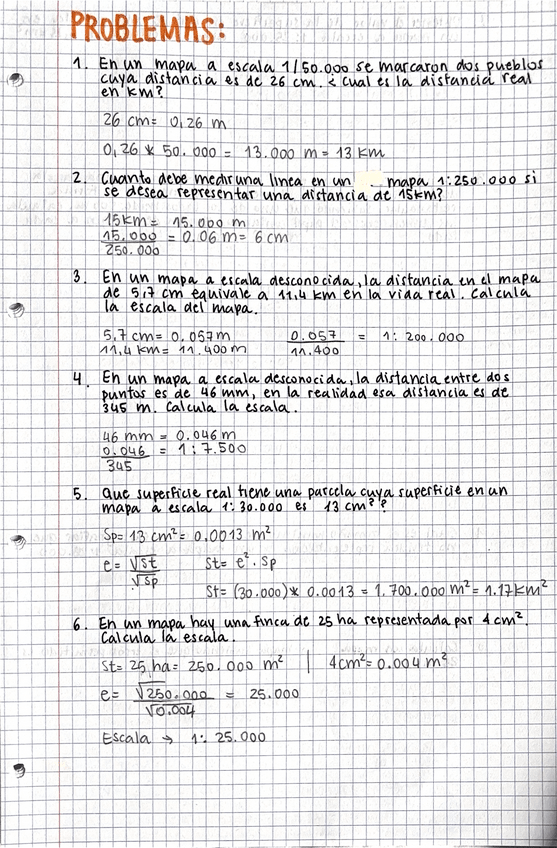 PROBLEMAS:
1. En un mapa a escala 1/50.000 se marcaron dos pueblos
cuya distancia es de 26 cm. ¿Cual es la distancia real
en km?
26 cm = 0,26 m
0,26 * 50.000 = 13.000 m = 13 Km
2. Cuanto debe medir una linea en un mapa 1:250.000 si
se desea representar una distancia de 15km?
15km = 15.000 m
15.000 / 250.000 = 0.06 m = 6 cm
3. En un mapa a escala desconocida, la distancia en el mapa
de 5,7 cm equivale a 11,4 km en la vida real. Calcula
la escala del mapa.
5,7 cm = 0,057m 0.057 / 11.400 = 1: 200.000
11,4 km = 11.400 m
4. En un mapa a escala desconocida, la distancia entre dos
puntos es de 46 mm, en la realidad esa distancia es de
345 m. Calcula la escala.
46 mm = 0.046 m
0.046 / 345 = 1:7.500
5. Que superficie real tiene una parcela cuya superficie en un
mapa a escala 1:30.000 es 13 cm²?
Sp= 13 cm² = 0.0013 m²
e = √St / √Sp St = e². Sp
St= (30.000)* 0.0013 = 1.700.000 m² = 1.17Km²
6. En un mapa hay una finca de 25 ha representada por 4 cm².
Calcula la escala.
St= 25 ha = 250.000 m² | 4cm² = 0.004 m²
e= √250.000 / √0.004 = 25.000
Escala → 1: 25.000